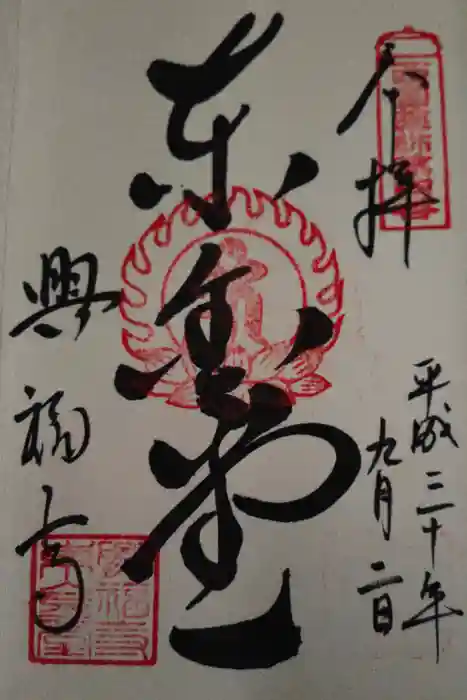 奉拝
平成三十年
九月二日
東金堂
興福寺